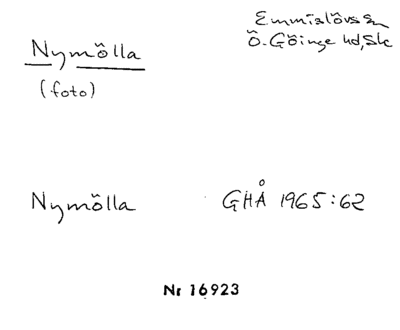 Emmislövs sn
Ö. Göinge hd, Sk
Nymölla
(foto)
Nymölla GHÅ 1965:62
Nr 16923